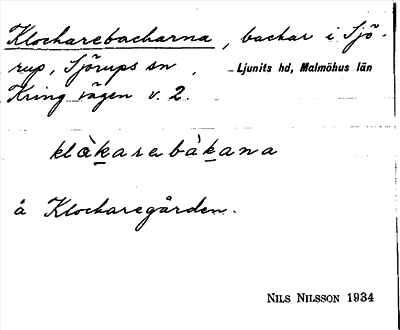 Klockarebackarna, backar i Sjö-
rup, Sjörups sn, Ljunits hd, Malmöhus län
Kring vägen v. 2.
klàkarebàkana
å Klockaregården.
NILS NILSSON 1934